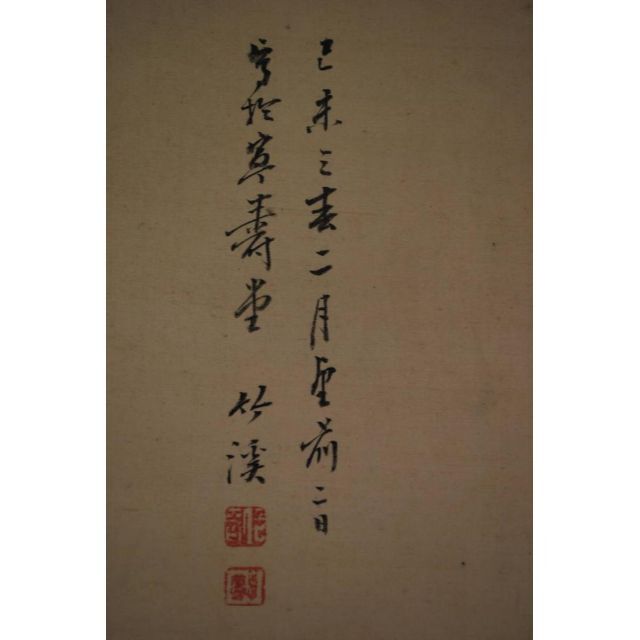 己未之春二月望前二日
寫於寅壽堂 竹溪